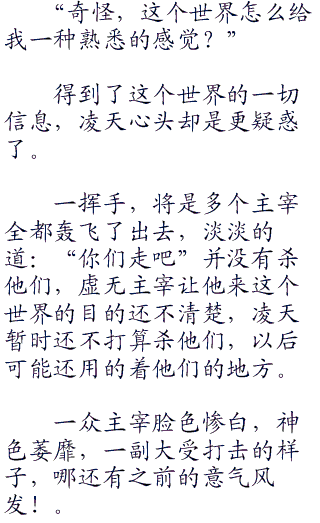 “奇怪，这个世界怎么给
我一种熟悉的感觉？”
得到了这个世界的一切
信息，凌天心头却是更疑惑
了。
一挥手，将是多个主宰
全都轰飞了出去，淡淡的
道：“你们走吧”并没有杀
他们，虚无主宰让他来这个
世界的目的还不清楚，凌天
暂时还不打算杀他们，以后
可能还用的着他们的地方。
一众主宰脸色惨白，神
色萎靡，一副大受打击的样
子，哪还有之前的意气风
发！。